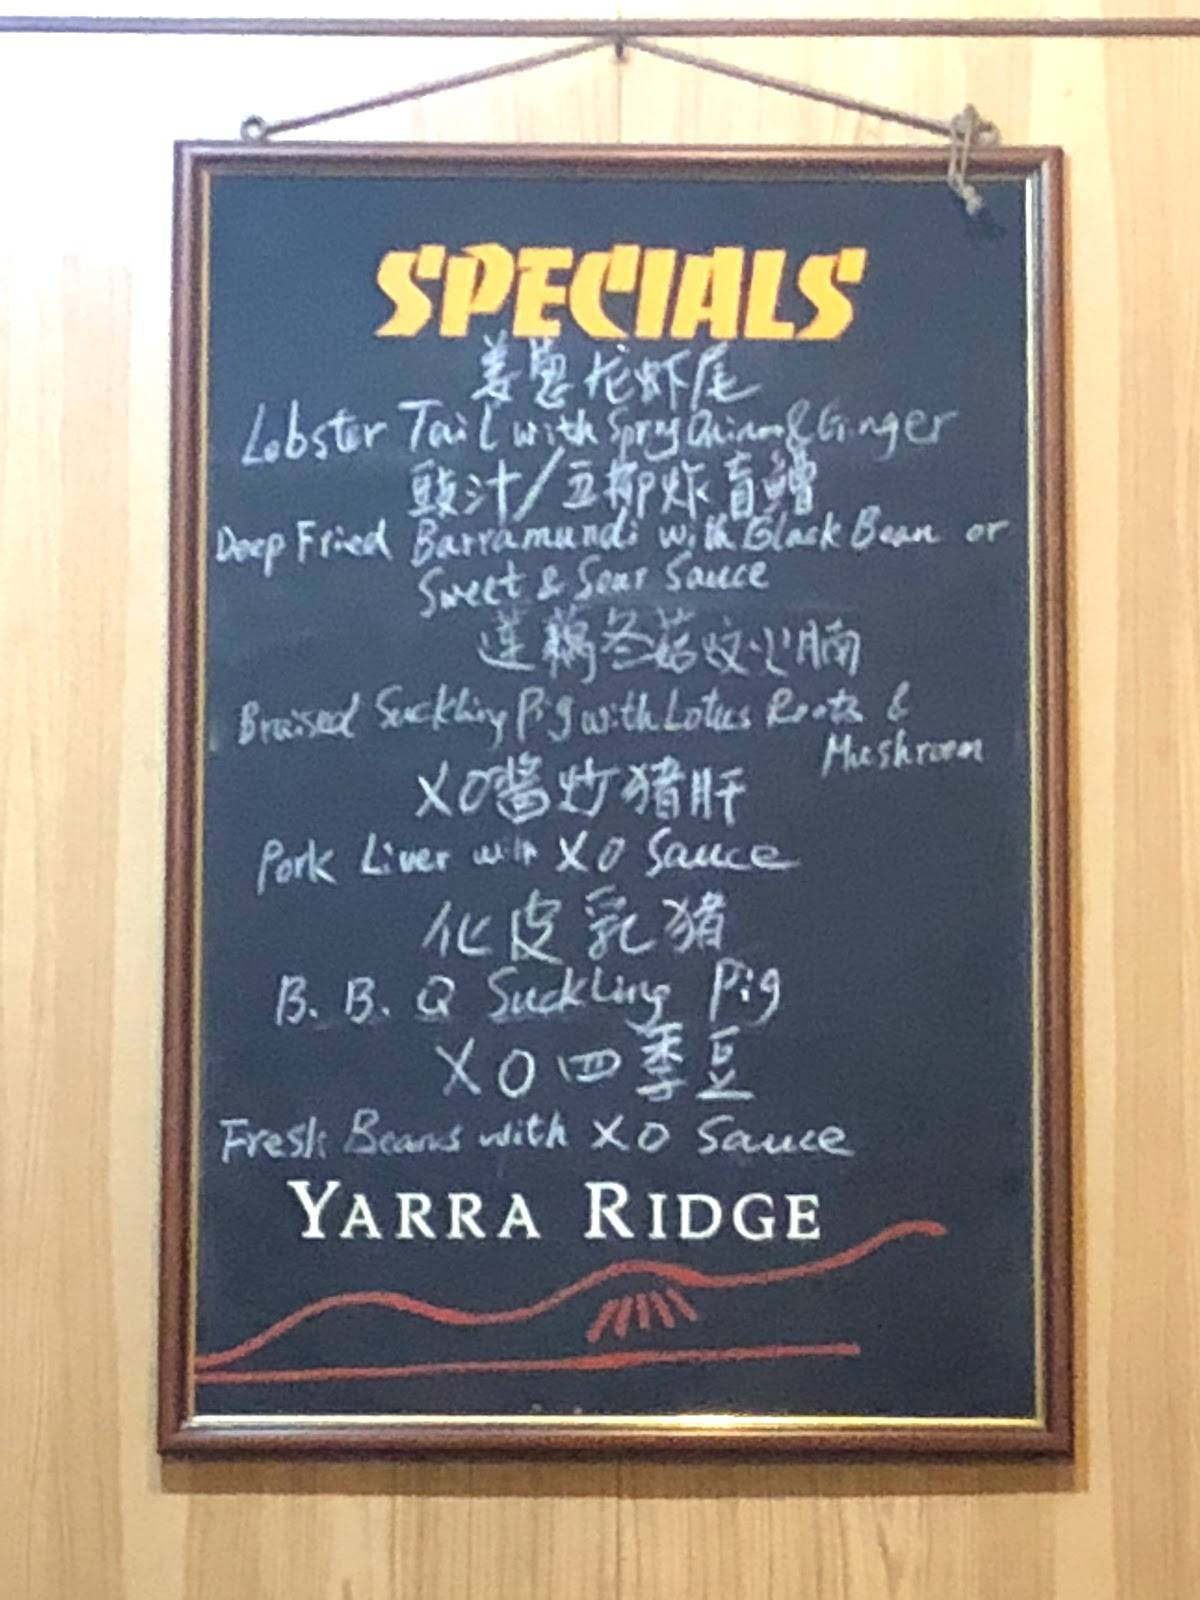 SPECIALS
姜葱龙虾尾
Lobster Tail with Spring Onion & Ginger
豉汁/五柳炸盲鰽
Deep Fried Barramundi with Black Bean or
Sweet & Sour Sauce
莲藕冬菇炆火腩
Braised Suckling Pig with Lotus Roots &
Mushroom
XO酱炒猪肝
Pork Liver with XO Sauce
化皮乳猪
B. B. Q Suckling Pig
XO四季豆
Fresh Beans with XO Sauce
YARRA RIDGE